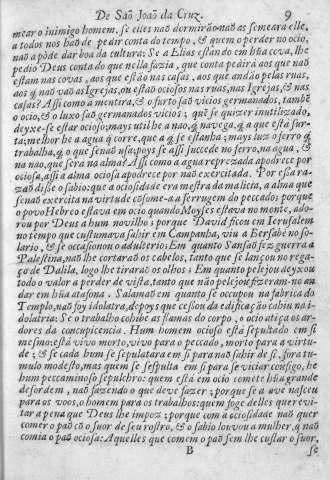 De Saõ Joaõ da Cruz. 9
mear o inimigo homem, se elles naõ dormiraõ naõ as semeara elle,
a todos nos haõ de pedir conta do tempo, & quem o perder no ocio,
naõ a pòde dar boa da cultura: Se a Elias estando em hũa cova, lhe
pedio Deus conta do que nella fazia, que conta pedirà aos que naõ
estam nas covas, aos que estaõ nas casas, aos que andaõ pelas ruas,
aos q̃ naõ vaõ as Igrejas, ou estaõ ociosos nas ruas, nas Igrejas, & nas
casas? Assi como a mentira, & o furto saõ vicios germanados, tambẽ
o ocio, & o luxo saõ germanados vicios; quẽ se quizer inutilizado,
deyxe-se estar ocioso; mays util he a nao, q̃ navega, q̃ a que està sur-
ta; melhor he a agua q̃ corre, que a q̃ se estanha; mays luz o ferro q̃
trabalha, q̃ o que senaõ usa; poys se assi succede no ferro, na agua, &
na nao, que serà na alma? Assi como a agua reprezada apodrece por
ociosa, assi a alma ociosa apodrece por naõ exercitada. Por essa ra-
zaõ disse o sabio: que a ociosidade era mestra da malicia, a alma que
senaõ exercita na virtude cósome-a a ferrugem do peccado; porque
o povo Hebreo estava em ocio quando Moyses esteva no monte, ado-
rou por Deus a hum novilho; porque David ficou em Ierusalem
no tempo que custumava sahir em Campanha, viu a Bersabè no so-
lario, & se occasionou o adulterio: Em quanto Sansaõ fez guerra a
Palestina, naõ lhe cortaraõ os cabelos, tanto que se lançou no rega-
ço de Dalila, logo lhe tiraraõ os olhos; Em quanto pelejou deyxou
todo o valor a perder de vista, tanto que naõ pelejou fizeram-no an
dar em hũa atafona. Salamaõ em quanto se occupou na fabrica do
Templo, naõ foy idolatra, depoys que cessou da edificaçaõ cahiu na i-
dolatra: Se o trabalho cohibe as flamas do corpo, o ocio atiça os ar-
dores da concupicencia. Hum homem ocioso està sepultado em si
mesmo: està vivo morto, vivo para o peccado, morto para a virtu-
de; & se cada hum se sepultara em si para naõ sahir de si, fora tu-
mulo modesto, mas quem se sepulta em si para se viciar consigo, he
hum peccaminoso sepulchro: quem està em ocio comete hũa grande
desordem, naõ fazendo o que deve fazer; porque se a ave nasceu
para os voos, o homem para os trabalhos: quem foge delles quer evi-
tar a pena que Deus lhe impoz; porque com a ociosidade naõ quer
comer o paõ cõ o suor de seu rostro, & o sabio louvou a mulher, q̃ naõ
comia o paõ ociosa: Aquelles que comem o paõ sem lhe custar o suor,
B se